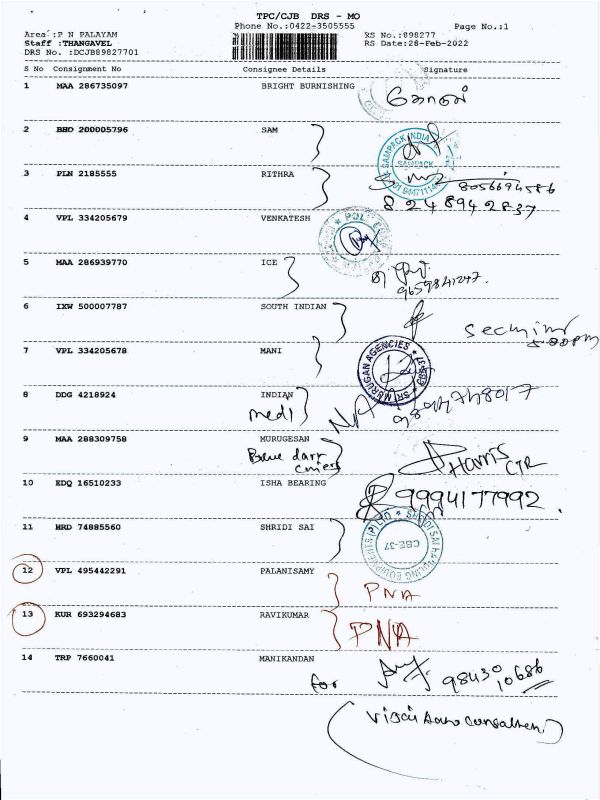 TPC/CJB DRS - MO
Phone No.:0422-3505555 Page No.;1
Area :P N PALAYAM XS No.:898277
Staff :THANGAVEL RS Date:28-Feb-2022
DRS No. :DCJB89827701
S No Consignment No Consignee Details Signature
1 MAA 286735097 BRIGHT BURNISHING
2 BHO 200005796 SAM
SAMPACK INDIA
SAMPACK
3 PLN 2185555 RITHRA 8056694586
8248942837
4 VPL 334205679 VENKATESH
5 MAA 286939770 ICE
9659841247.
6 IXW 500007787 SOUTH INDIAN
5:00pm
7 VPL 334205678 MANI
SRI MURUGAN AGENCIES
8 DDG 4218924 INDIAN
medi NA
9 MAA 288309758 MURUGESAN
Blue dart Harris
CTR
10 EDQ 16510233 ISHA BEARING 9994177992
11 HRD 74885560 SHRIDI SAI
SHRIDI SAI HANDLING EQUIPMENTS (P) LTD
CBE-37
12 VPL 495442291 PALANISAMY PNA
13 KUR 693294683 RAVIKUMAR PNA
14 TRP 7660041 MANIKANDAN
for 98430 10686